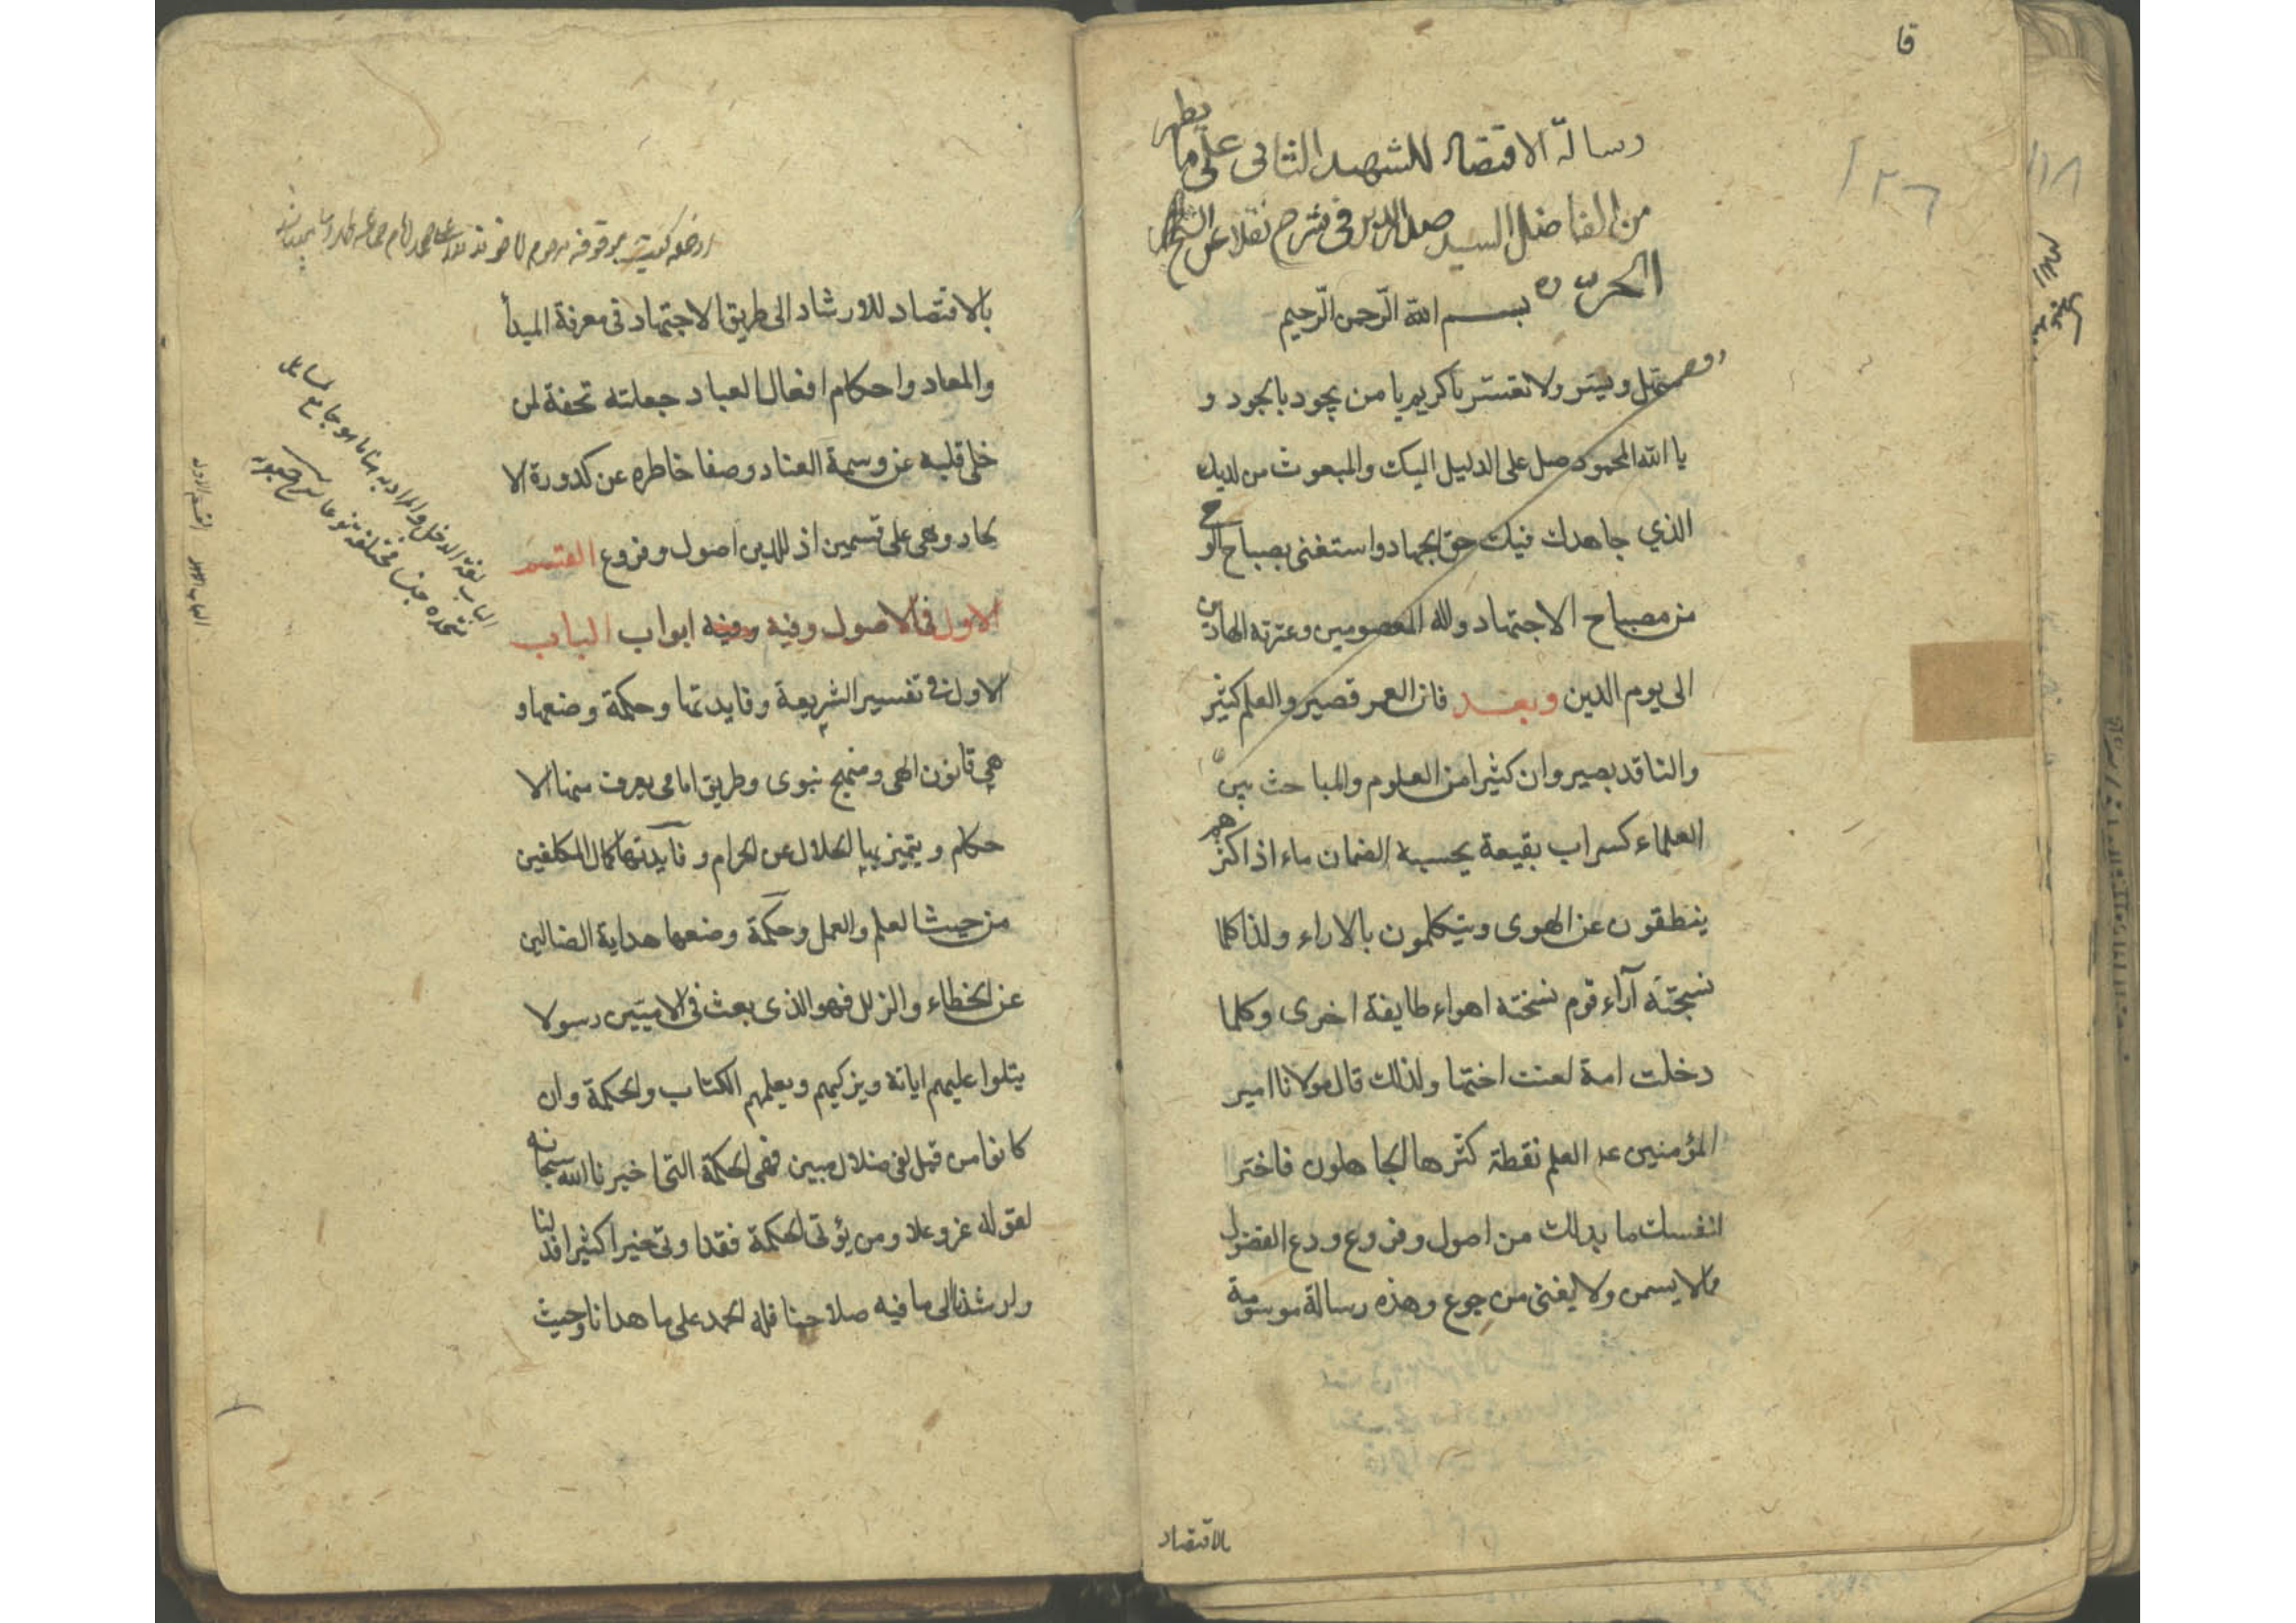 قا
رسالة الاقتصاد للشهيد الثاني على ما يظهر
من الفاضل السيد صدر الدين في شرح نقلا عن الشيخ
الحر ره
بسم الله الرحمن الرحيم
ويسر ولا تعسر يا كريم يا من يجود بالجود و
يا الله المحمود صل على الدليل اليك والمبعوث من لديك
الذي جاهدك فيك حق الجهاد واستغنى بصباح الوحي
من مصباح الاجتهاد واله المعصومين وعترته الهادين
الى يوم الدين وبعد فان العمر قصير والعلم كثير
والناقد بصير وان كثيرا من العلوم والمباحث بين
العلماء كسراب بقيعة يحسبه الضمان ماء اذ اكثرهم
ينطقون عن الهوى ويتكلمون بالاراء ولذا كلما
نسجته آراء قوم نسخته اهواء طايفة اخرى وكلما
دخلت امة لعنت اختها ولذلك قال مولانا امير
المؤمنين ع العلم نقطة كثرها الجاهلون فاختر
لنفسك ما بدلك من اصول وفروع ودع الفضول
مالا يسمن ولا يغنى من جوع وهذه رسالة موسومة
بالاقتصاد
بالاقتصاد للارشاد الى طريق الاجتهاد فى معرفة المبدأ
والمعاد واحكام افعال العباد جعلته تحفة لمن
خلى قلبه عن وسمة العناد وصفا خاطره عن كدورة الا
لحاد وهى على قسمين اذ للدين اصول وفروع القسم
الاول فى الاصول وفيه وفيه ابواب الباب
الاول فى تفسير الشريعة وفايدتها وحكمة وضعها و
هي قانون الهى ومنهج نبوى وطريق امامى يعرف منها الا
حكام ويتميز بها الحلال عن الحرام وفايدتها كمال المكلفين
من حيث العلم والعمل وحكمة وضعها هداية الضالين
عن الخطاء والزلل فهو الذى بعث فى الاميين رسولا
يتلوا عليهم اياته ويزكيهم ويعلمهم الكتاب والحكمة وان
كانوا من قبل لفى ضلال مبين فهى الحكمة التى اخبرنا الله سبحانه
لقوله عز وعلا ومن يؤتى الحكمة فقد اوتى خيرا كثيرا فدلنا
وارشدنا الى ما فيه صلاحنا فله الحمد على ما هدانا وحيث
الباب لغة المدخل والمراد به هنا ما هو جامع لمسايل
متحدة جنسا مختلفة نوعا
القسم الاول
الباب الاول